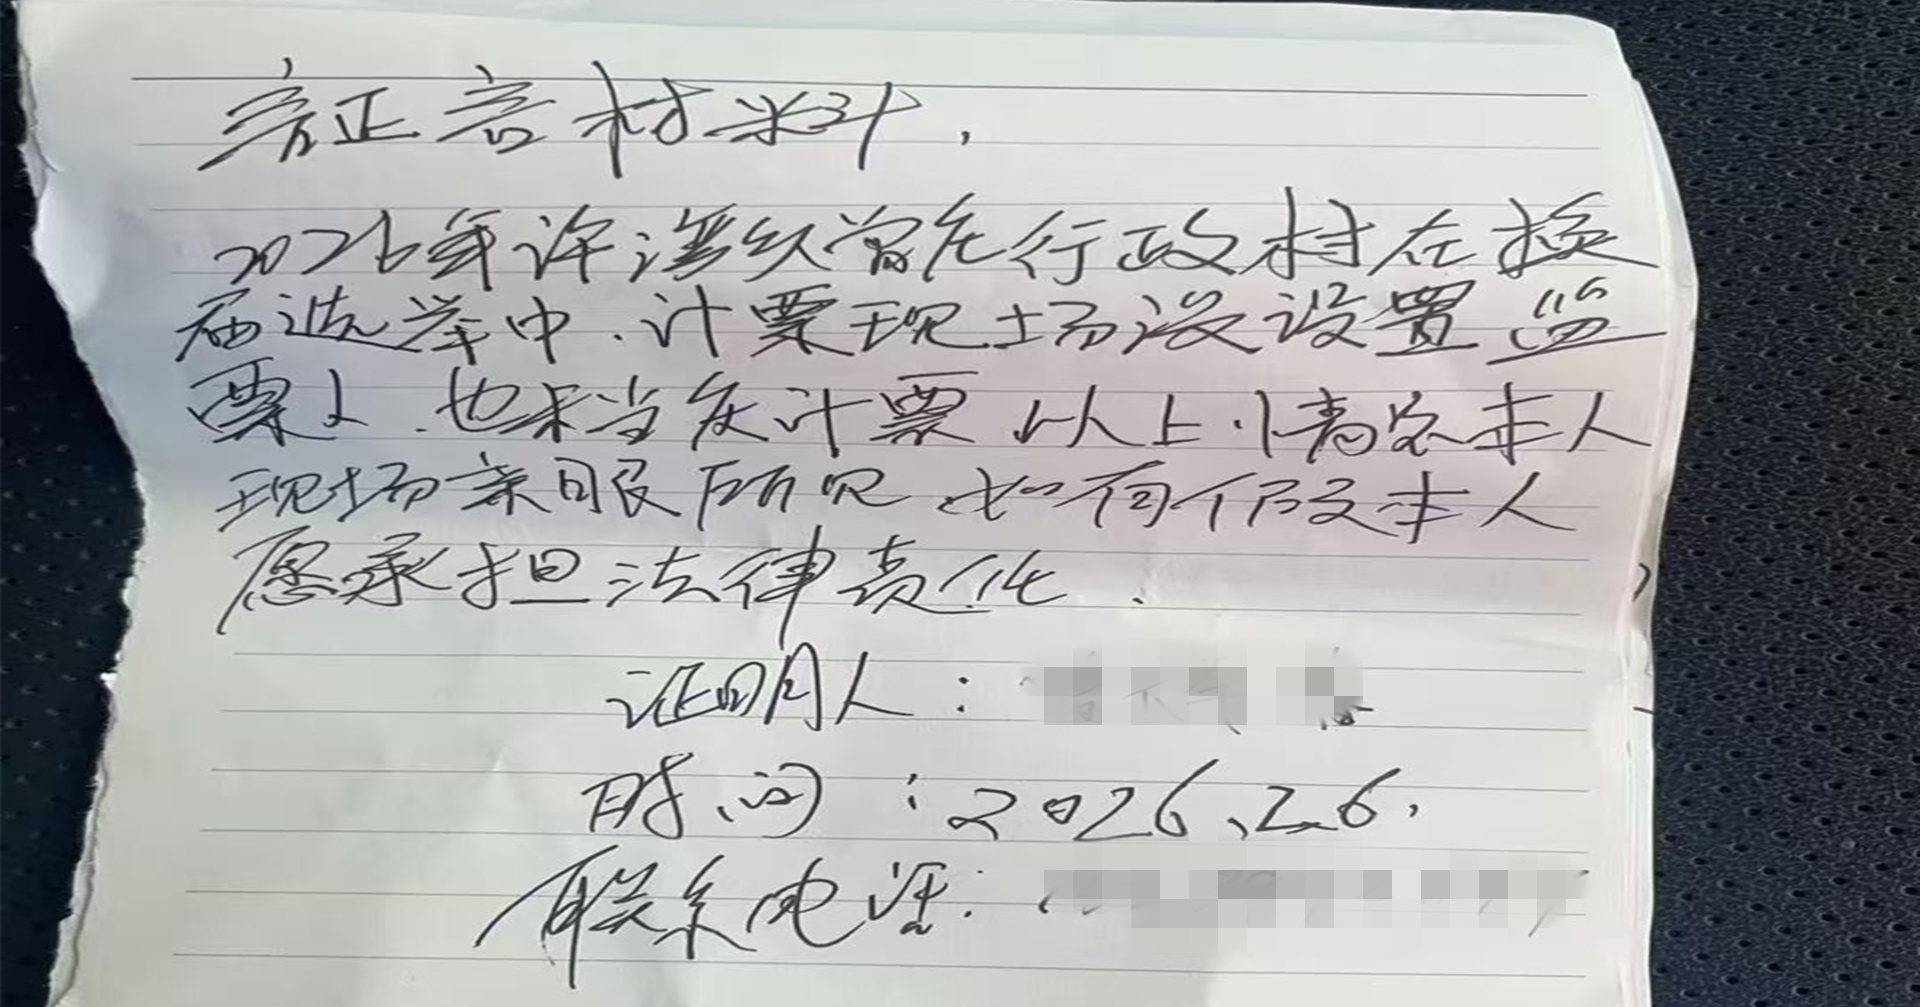 証言材料,
2026年许湾乡曾庄行政村在换
届选举中.计票现场没设置监
票人.也未当众计票 以上情况本人
现场亲眼所见 如有假本人
愿承担法律责任.
证明人:
时间:2026.2.6.
联系电话: